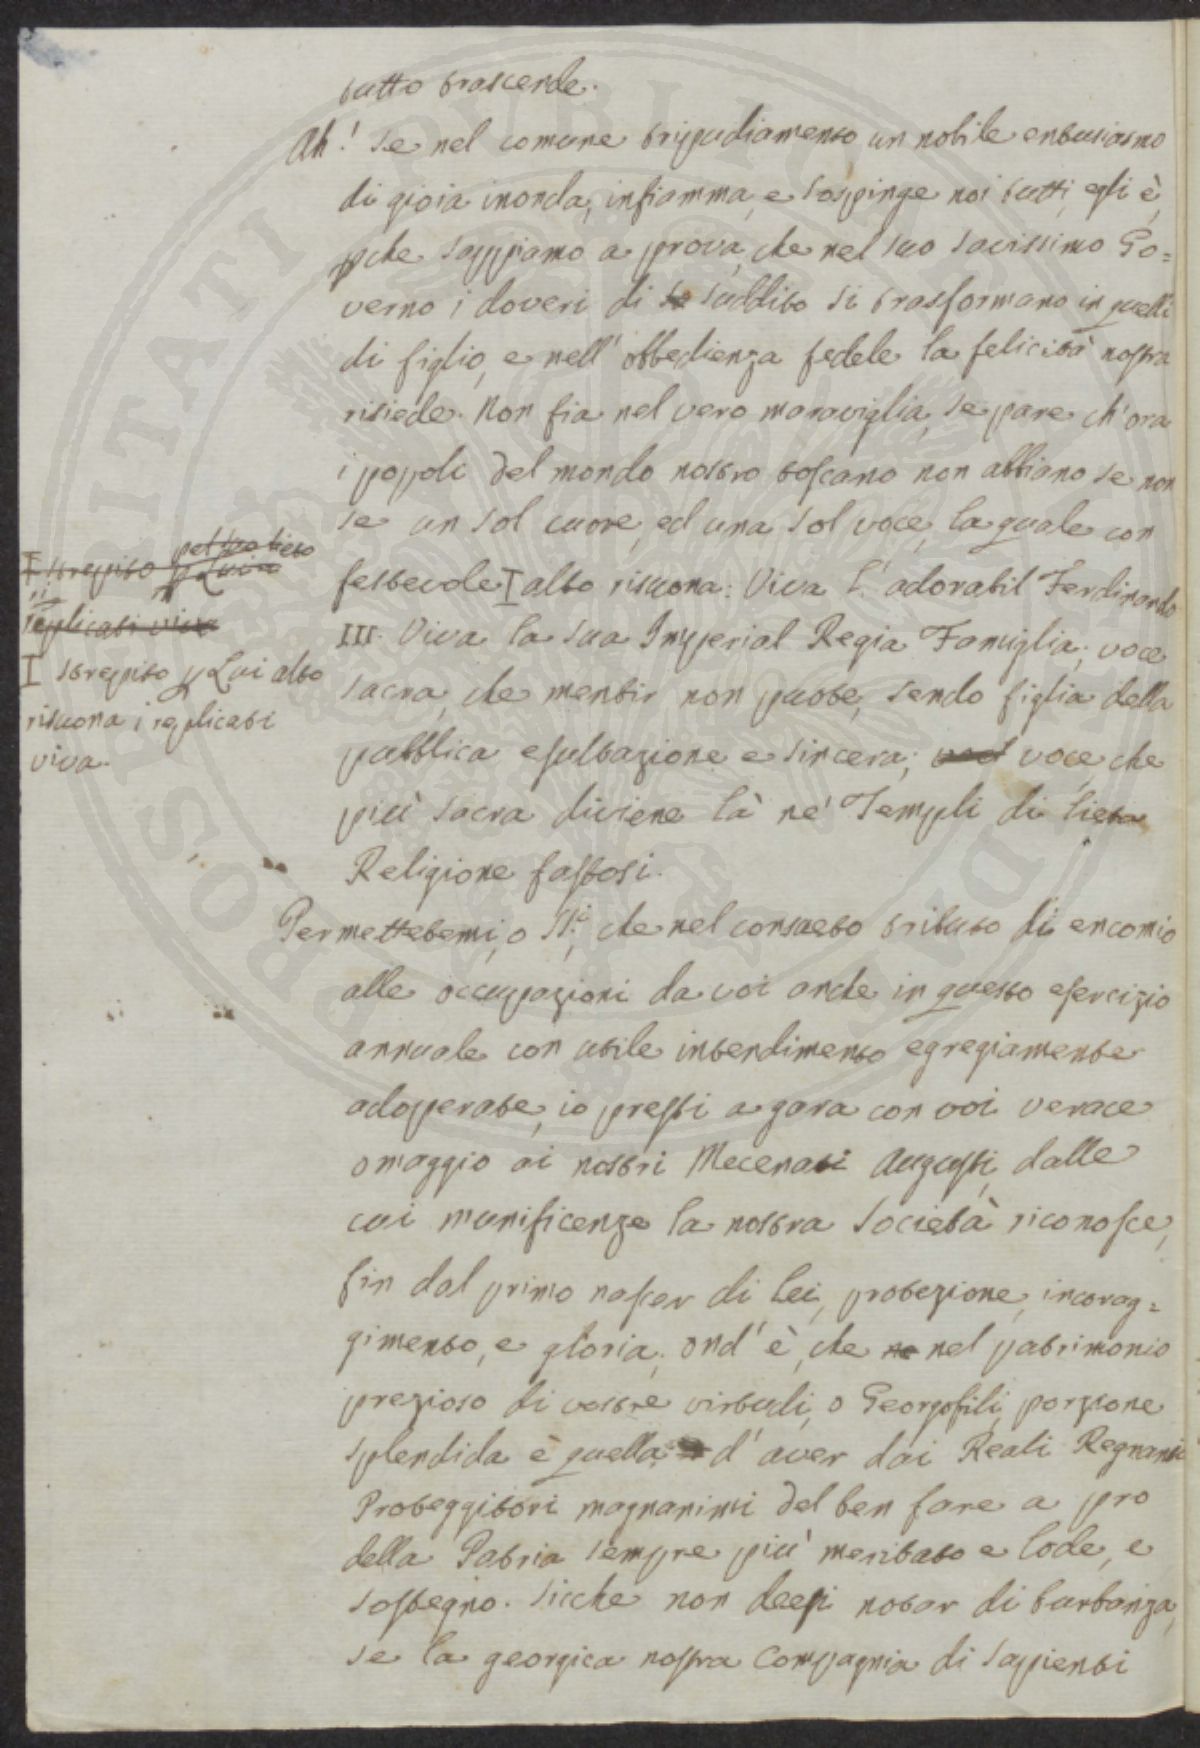 tutto trascende.
Ah! Se nel comune tripudiamento un nobile entusiasmo
di gioia inonda, infiamma, e sospinge noi tutti, egli è,
pche sappiamo a prova, che nel suo savissimo Go=
verno i doveri di se suddito si trasformano in quelli
di figlio, e nell'obbedienza fedele la felicità nostra
risiede. Non fia nel vero maraviglia, se pare ch'ora
i popoli del mondo nostro toscano non abbiano se non
se un sol cuore, ed una sol voce, la quale con
festevole I alto risuona: Viva l'adorabil Ferdinando
III. Viva la sua Imperial Regia Famiglia; voce
sacra, che mentir non puote, sendo figlia della
pubblica esultazione e sincera; voce, che
più sacra diviene là ne' Templi di lieta
Religione fastosi.
I strepito
replicati viva
I strepito p Lui alto
risuona i replicati
viva.
Permettetemi, o SSi, che nel consueto tributo di encomio
alle occupazioni da voi anche in questo esercizio
annuale con utile intendimento egregiamente
adoperate, io presti a gara con voi verace
omaggio ai nostri Mecenati Augusti, dalle
cui munificenze la nostra Società riconosce,
fin dal primo nascer di lei, protezione, incorag=
gimento, e gloria; ond'è, che ne nel patrimonio
prezioso di vostre virtudi, o Georgofili, porzione
splendida è quella d'aver dai Reali Regnanti
Proteggitori magnanimi del ben fare a pro
della Patria sempre più meritato e lode, e
sostegno. Sicche non deesi notar di burbanza,
se la georgica nostra Compagnia di sapienti